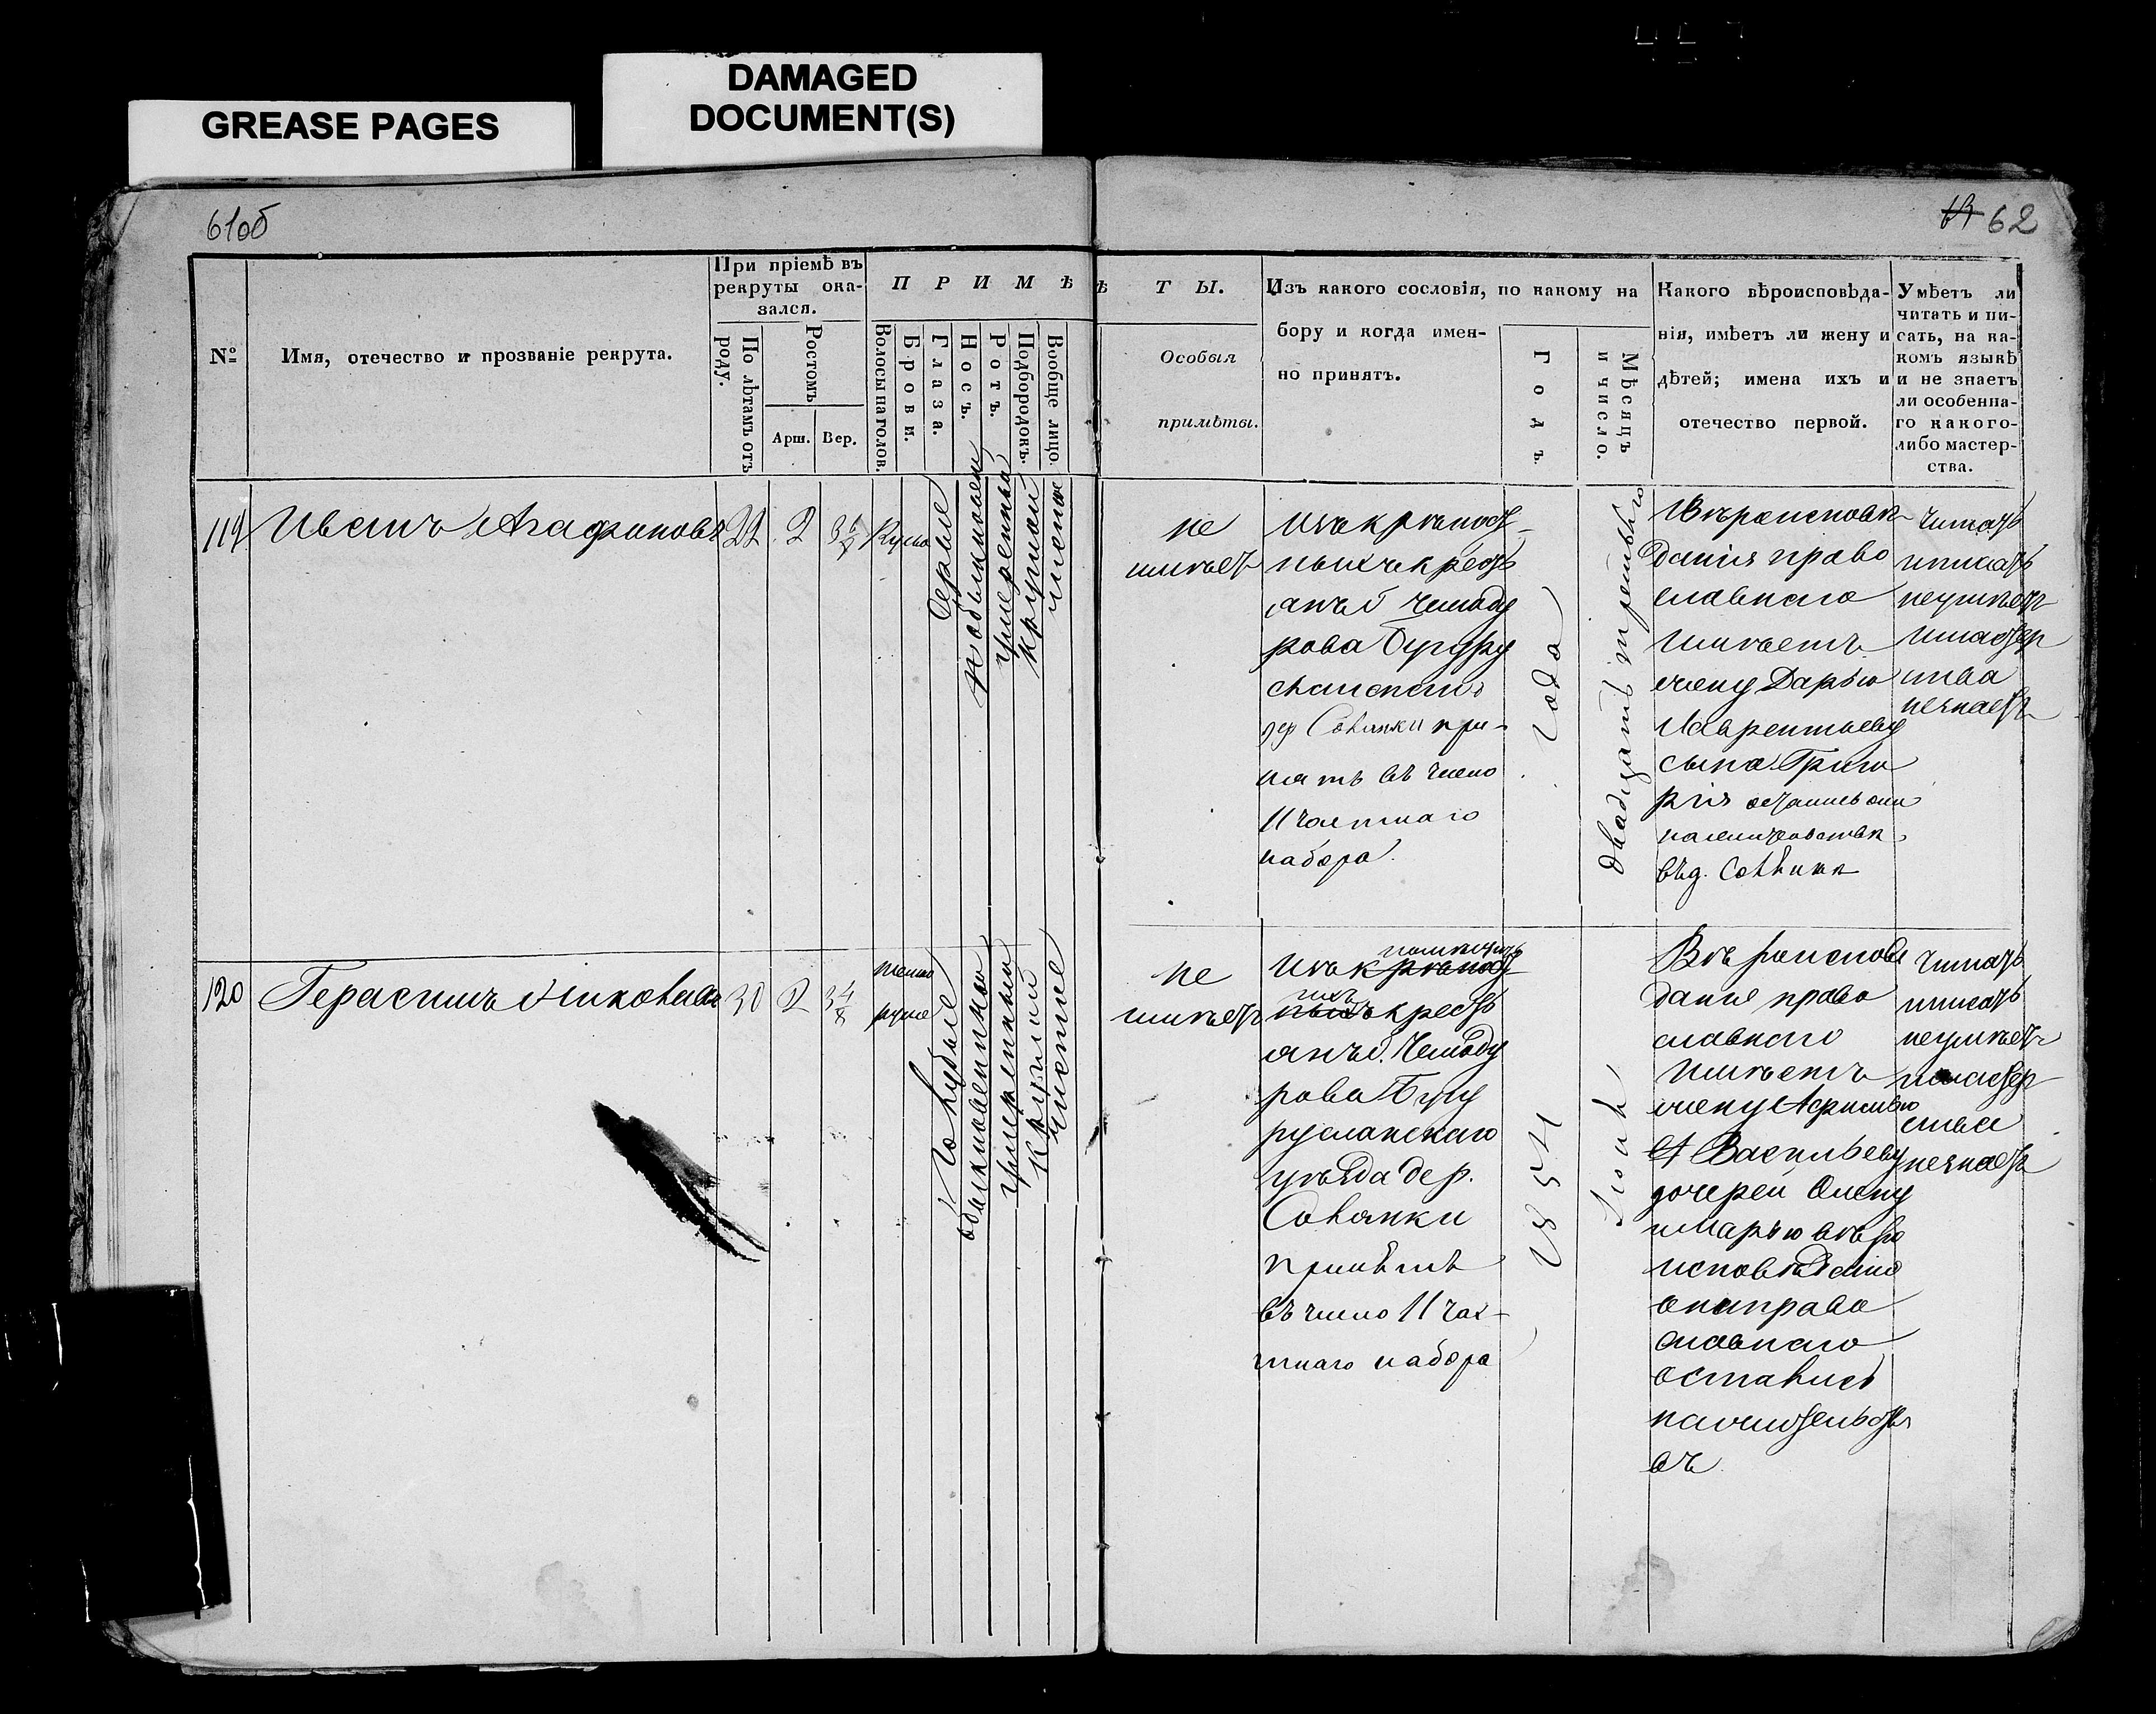 GREASE PAGES
DAMAGED
DOCUMENT(S)
61об
62
№
Имя, отечество и прозваніе рекрута.
При пріемѣ въ
рекруты ока-
зался.
По лѣтамъ отъ
роду.
Ростомъ
Арш.
Вер.
ПРИМѢ
Волосы на голов.
Брови.
Глаза.
Носъ.
Ротъ.
Подбородокъ.
Вообще лицо.
ѢТЫ.
Особыя
примѣты.
Изъ какого сословія, по какому на
бору и когда имен-
но принятъ.
Годъ.
Мѣсяцъ
и число.
Какого вѣроисповѣда-
нія, имѣетъ ли жену и
дѣтей; имена ихъ и
отечество первой.
Умѣетъ ли
читать и пи-
сать, на ка-
комъ языкѣ
и не знаетъ
ли особенна-
го какого-
либо мастер-
ства.
119
Иванъ Агафоновъ
22
2
3 6/8
Русы
серые
обыкновен
умеренный
круглой
чистое
не
имѣетъ
изъ крѣпост-
ныхъ крестъ
янъ Г Чемоду
рова Бугуру
сланскаго
дер Совинки при-
нятъ въ число
11 частнаго
набора.
Года
двадцать третьяго
Вѣроисповѣ
данія право
славнаго
имѣетъ
жену Дарью
Лаврентьеву
сына Григо
рія остались они
на жительствѣ
въ д. Совинки
читать
и писать
неумѣетъ
и мастер
ства
незнаетъ
120
Герасимъ Никоновъ
30
2
3 4/8
темно
русые
Голубые
обыкновенной
умеренный
Круглый
чистое
не
имѣетъ
Изъ крѣпост помѣщичь
ныхъ ихъ крестъ
янъ Г. Чемоду
рова Бугу
русланскаго
уѣзда дер.
Совинки
принятъ
въ число 11 час-
тнаго набора
1854
Іюня
Вѣроисповѣ
даніе право
славнаго
Имѣетъ
жену
Васильеву
дочерей Олену
и Марью вѣро
исповѣданіе
они право
славнаго
остались
на жительст
вѣ
читать
и писать
неумѣетъ
и мастер
ства
незнаетъ